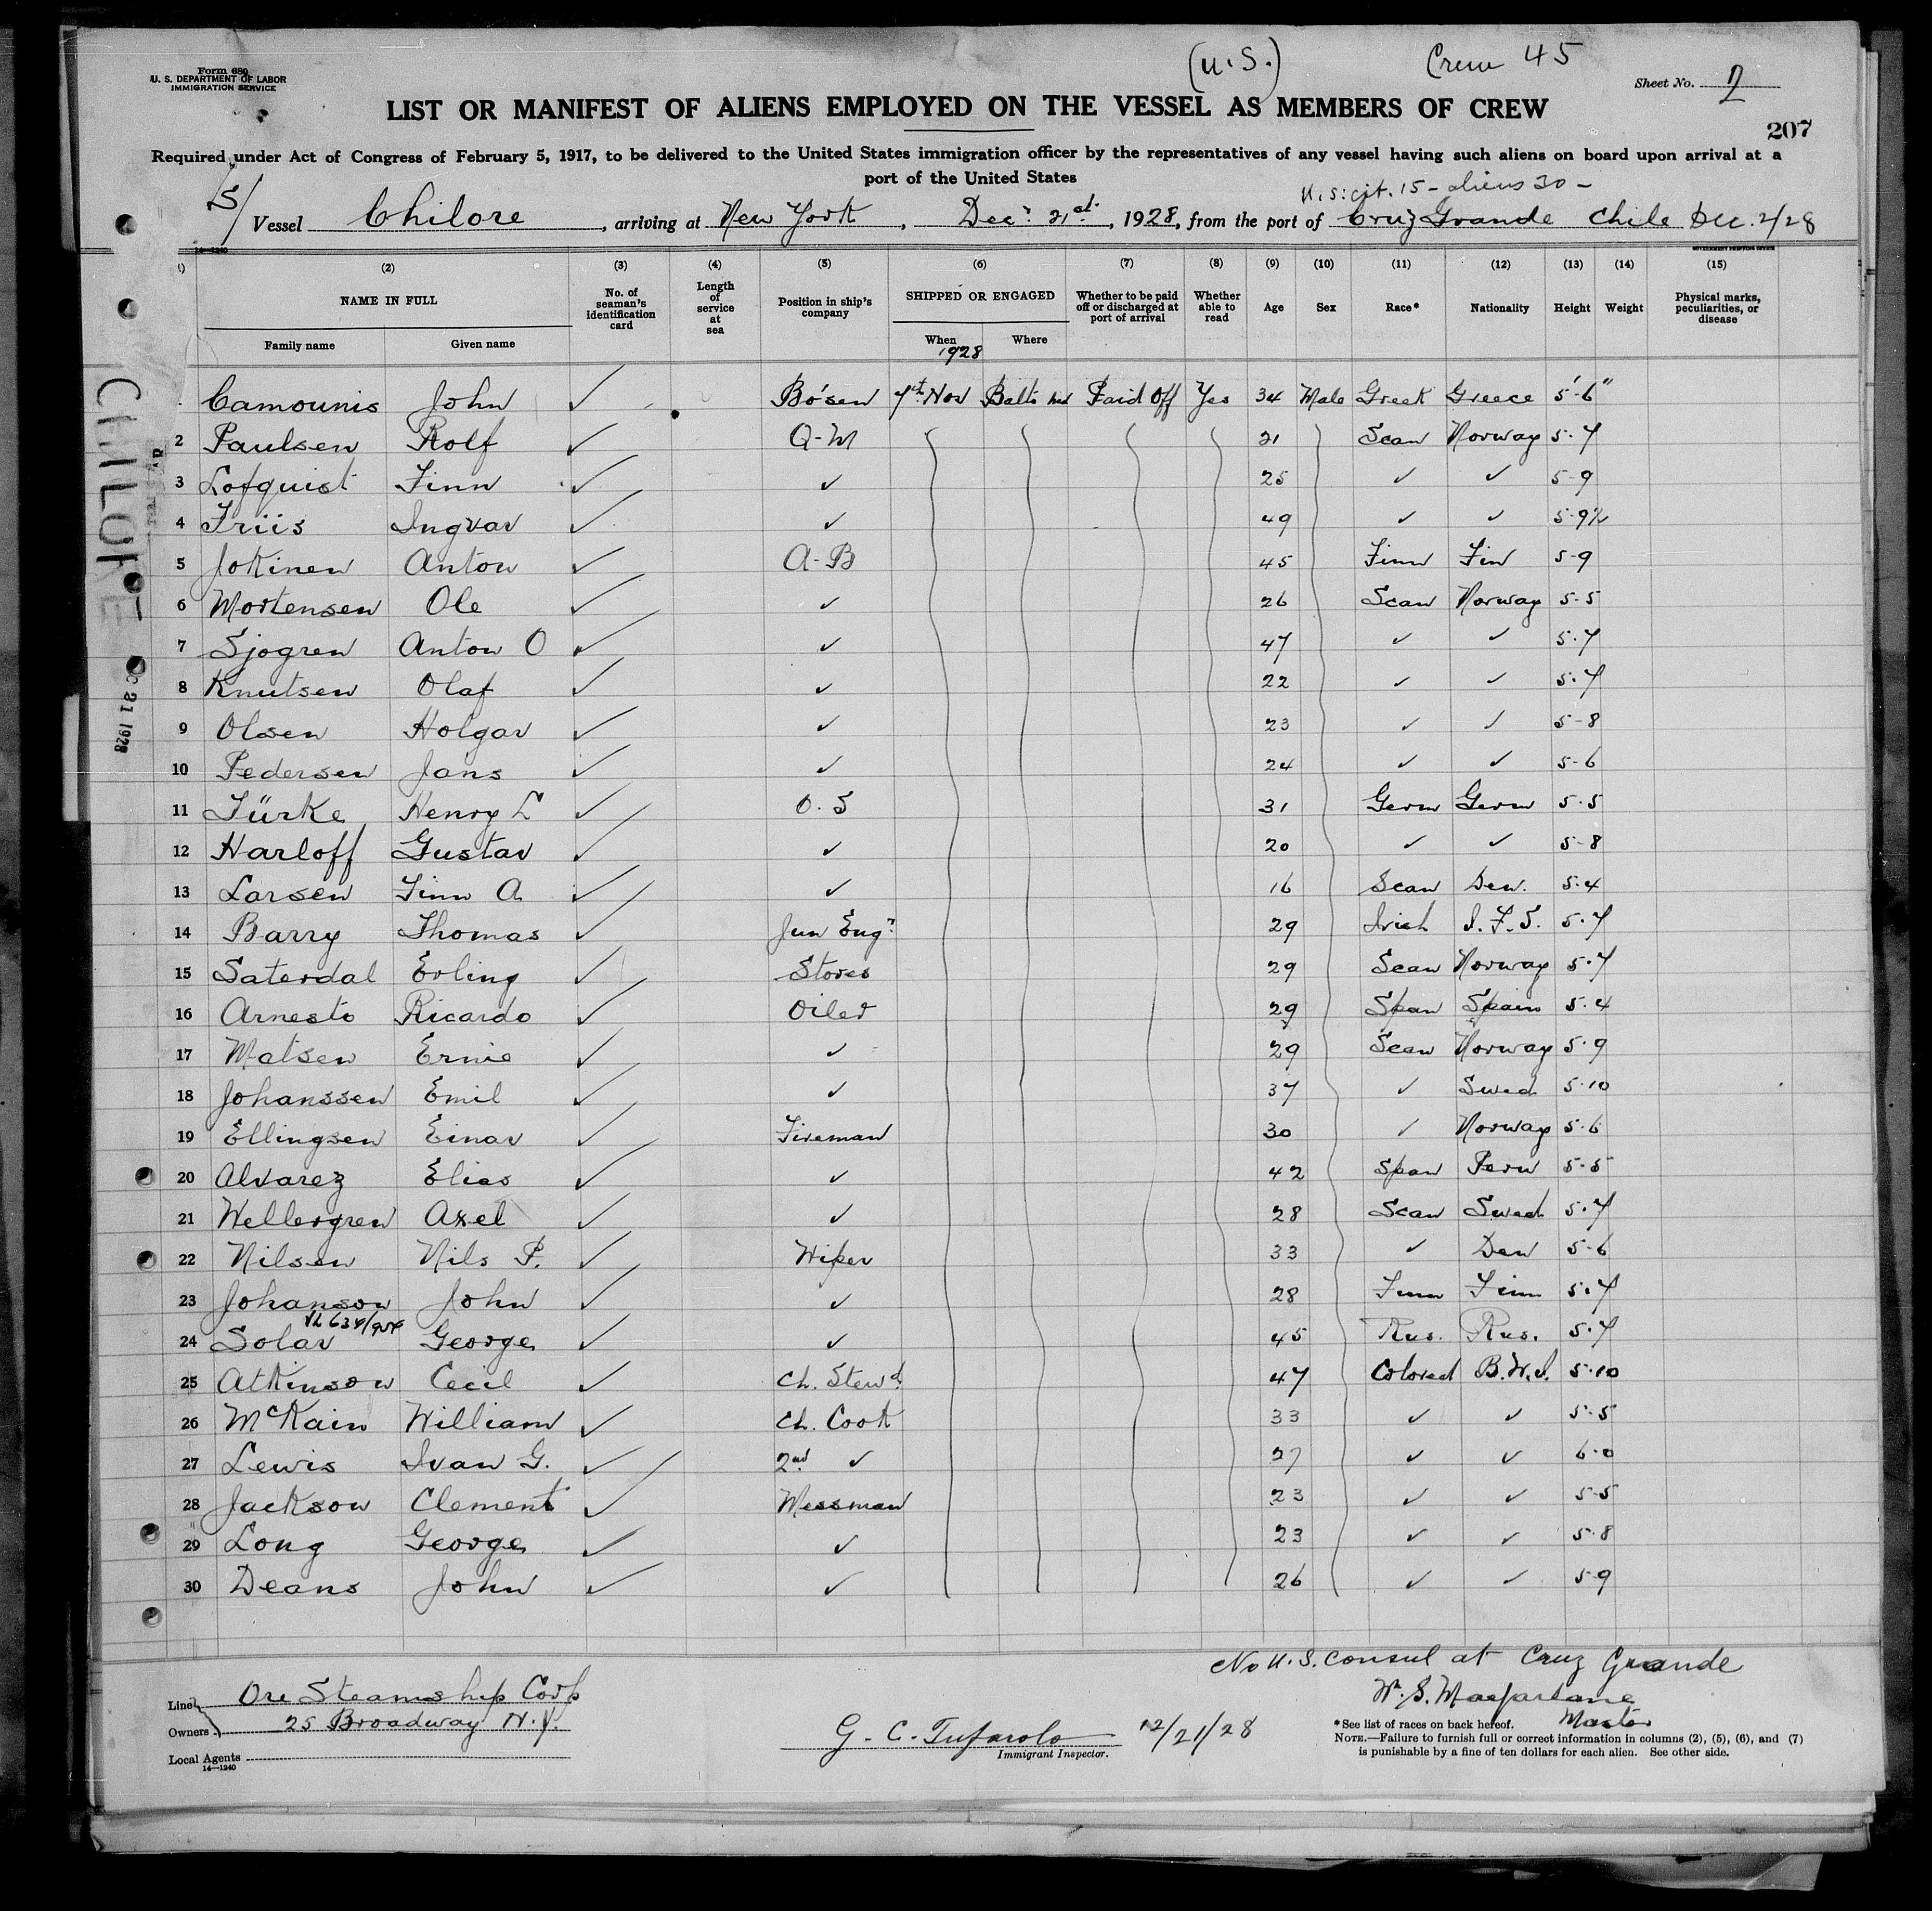 Form 680
U. S. DEPARTMENT OF LABOR
IMMIGRATION SERVICE
(U.S.)
Crew 45
Sheet No. 2
LIST OR MANIFEST OF ALIENS EMPLOYED ON THE VESSEL AS MEMBERS OF CREW
207
Required under Act of Congress of February 5, 1917, to be delivered to the United States immigration officer by the representatives of any vessel having such aliens on board upon arrival at a
port of the United States
U.S. cit. 15 - aliens 30 -
S/ Vessel Chilore, arriving at New York, Decr. 21st, 1928, from the port of Cruz Grande Chile Dec. 2/28
14—1240 GOVERNMENT PRINTING OFFICE
(2) (3) (4) (5) (6) (7) (8) (9) (10) (11) (12) (13) (14) (15)
NAME IN FULL No. of seaman's identification card Length of service at sea Position in ship's company SHIPPED OR ENGAGED Whether to be paid off or discharged at port of arrival Whether able to read Age Sex Race* Nationality Height Weight Physical marks, peculiarities, or disease
Family name Given name When Where
1928
Camounis John ✓ Bo'sen 7th Nov Balto Md Paid Off Yes 34 Male Greek Greece 5'-6"
2 Paulsen Rolf ✓ Q-M 21 Scan Norway 5-7
3 Lofquist Finn ✓ ✓ 25 ✓ ✓ 5-9
4 Friis Ingvar ✓ ✓ 49 ✓ ✓ 5-9½
5 Jokinen Anton ✓ A-B 45 Finn Fin 5-9
6 Mortensen Ole ✓ ✓ 26 Scan Norway 5-5
7 Sjogren Anton O ✓ ✓ 47 ✓ ✓ 5-7
8 Knutsen Olaf ✓ ✓ 22 ✓ ✓ 5-7
9 Olsen Holgar ✓ ✓ 23 ✓ ✓ 5-8
10 Pedersen Jans ✓ ✓ 24 ✓ ✓ 5-6
11 Türke Henry L ✓ O.S 31 Germ Germ 5-5
12 Harloff Gustav ✓ ✓ 20 ✓ ✓ 5-8
13 Larsen Finn A ✓ ✓ 16 Scan Den. 5-4
14 Barry Thomas ✓ Jun Engr 29 Irish I.F.S. 5-7
15 Saterdal Erling ✓ Stores 29 Scan Norway 5-7
16 Arnesto Ricardo ✓ Oiler 29 Span Spain 5-4
17 Matsen Ernie ✓ ✓ 29 Scan Norway 5-9
18 Johanssen Emil ✓ ✓ 37 ✓ Swed 5-10
19 Ellingsen Einar ✓ Fireman 30 ✓ Norway 5-6
20 Alvarez Elias ✓ ✓ 42 Span Peru 5-5
21 Wellergren Axel ✓ ✓ 28 Scan Swed 5-7
22 Nilsen Nils P. ✓ Wiper 33 ✓ Den 5-6
23 Johanson John ✓ ✓ 28 Finn Finn 5-7
24 Solar George ✓ ✓ 45 Rus. Rus. 5-7
25 Atkinson Cecil ✓ Ch. Stewd 47 Colored B.W.I. 5-10
26 McKain William ✓ Ch. Cook 33 ✓ ✓ 5-5
27 Lewis Ivan G. ✓ 2nd ✓ 27 ✓ ✓ 6-0
28 Jackson Clement ✓ Messman 23 ✓ ✓ 5-5
29 Long George ✓ ✓ 23 ✓ ✓ 5-8
30 Deans John ✓ ✓ 26 ✓ ✓ 5-9
CHILORE
21 1928
No U.S. Consul at Cruz Grande
W. S. Macfarlane
Master
Line Ore Steamship Corp
Owners 25 Broadway N.Y.
Local Agents
14—1240
G. C. Tufarolo 12/21/28
Immigrant Inspector.
*See list of races on back hereof.
NOTE.—Failure to furnish full or correct information in columns (2), (5), (6), and (7)
is punishable by a fine of ten dollars for each alien. See other side.